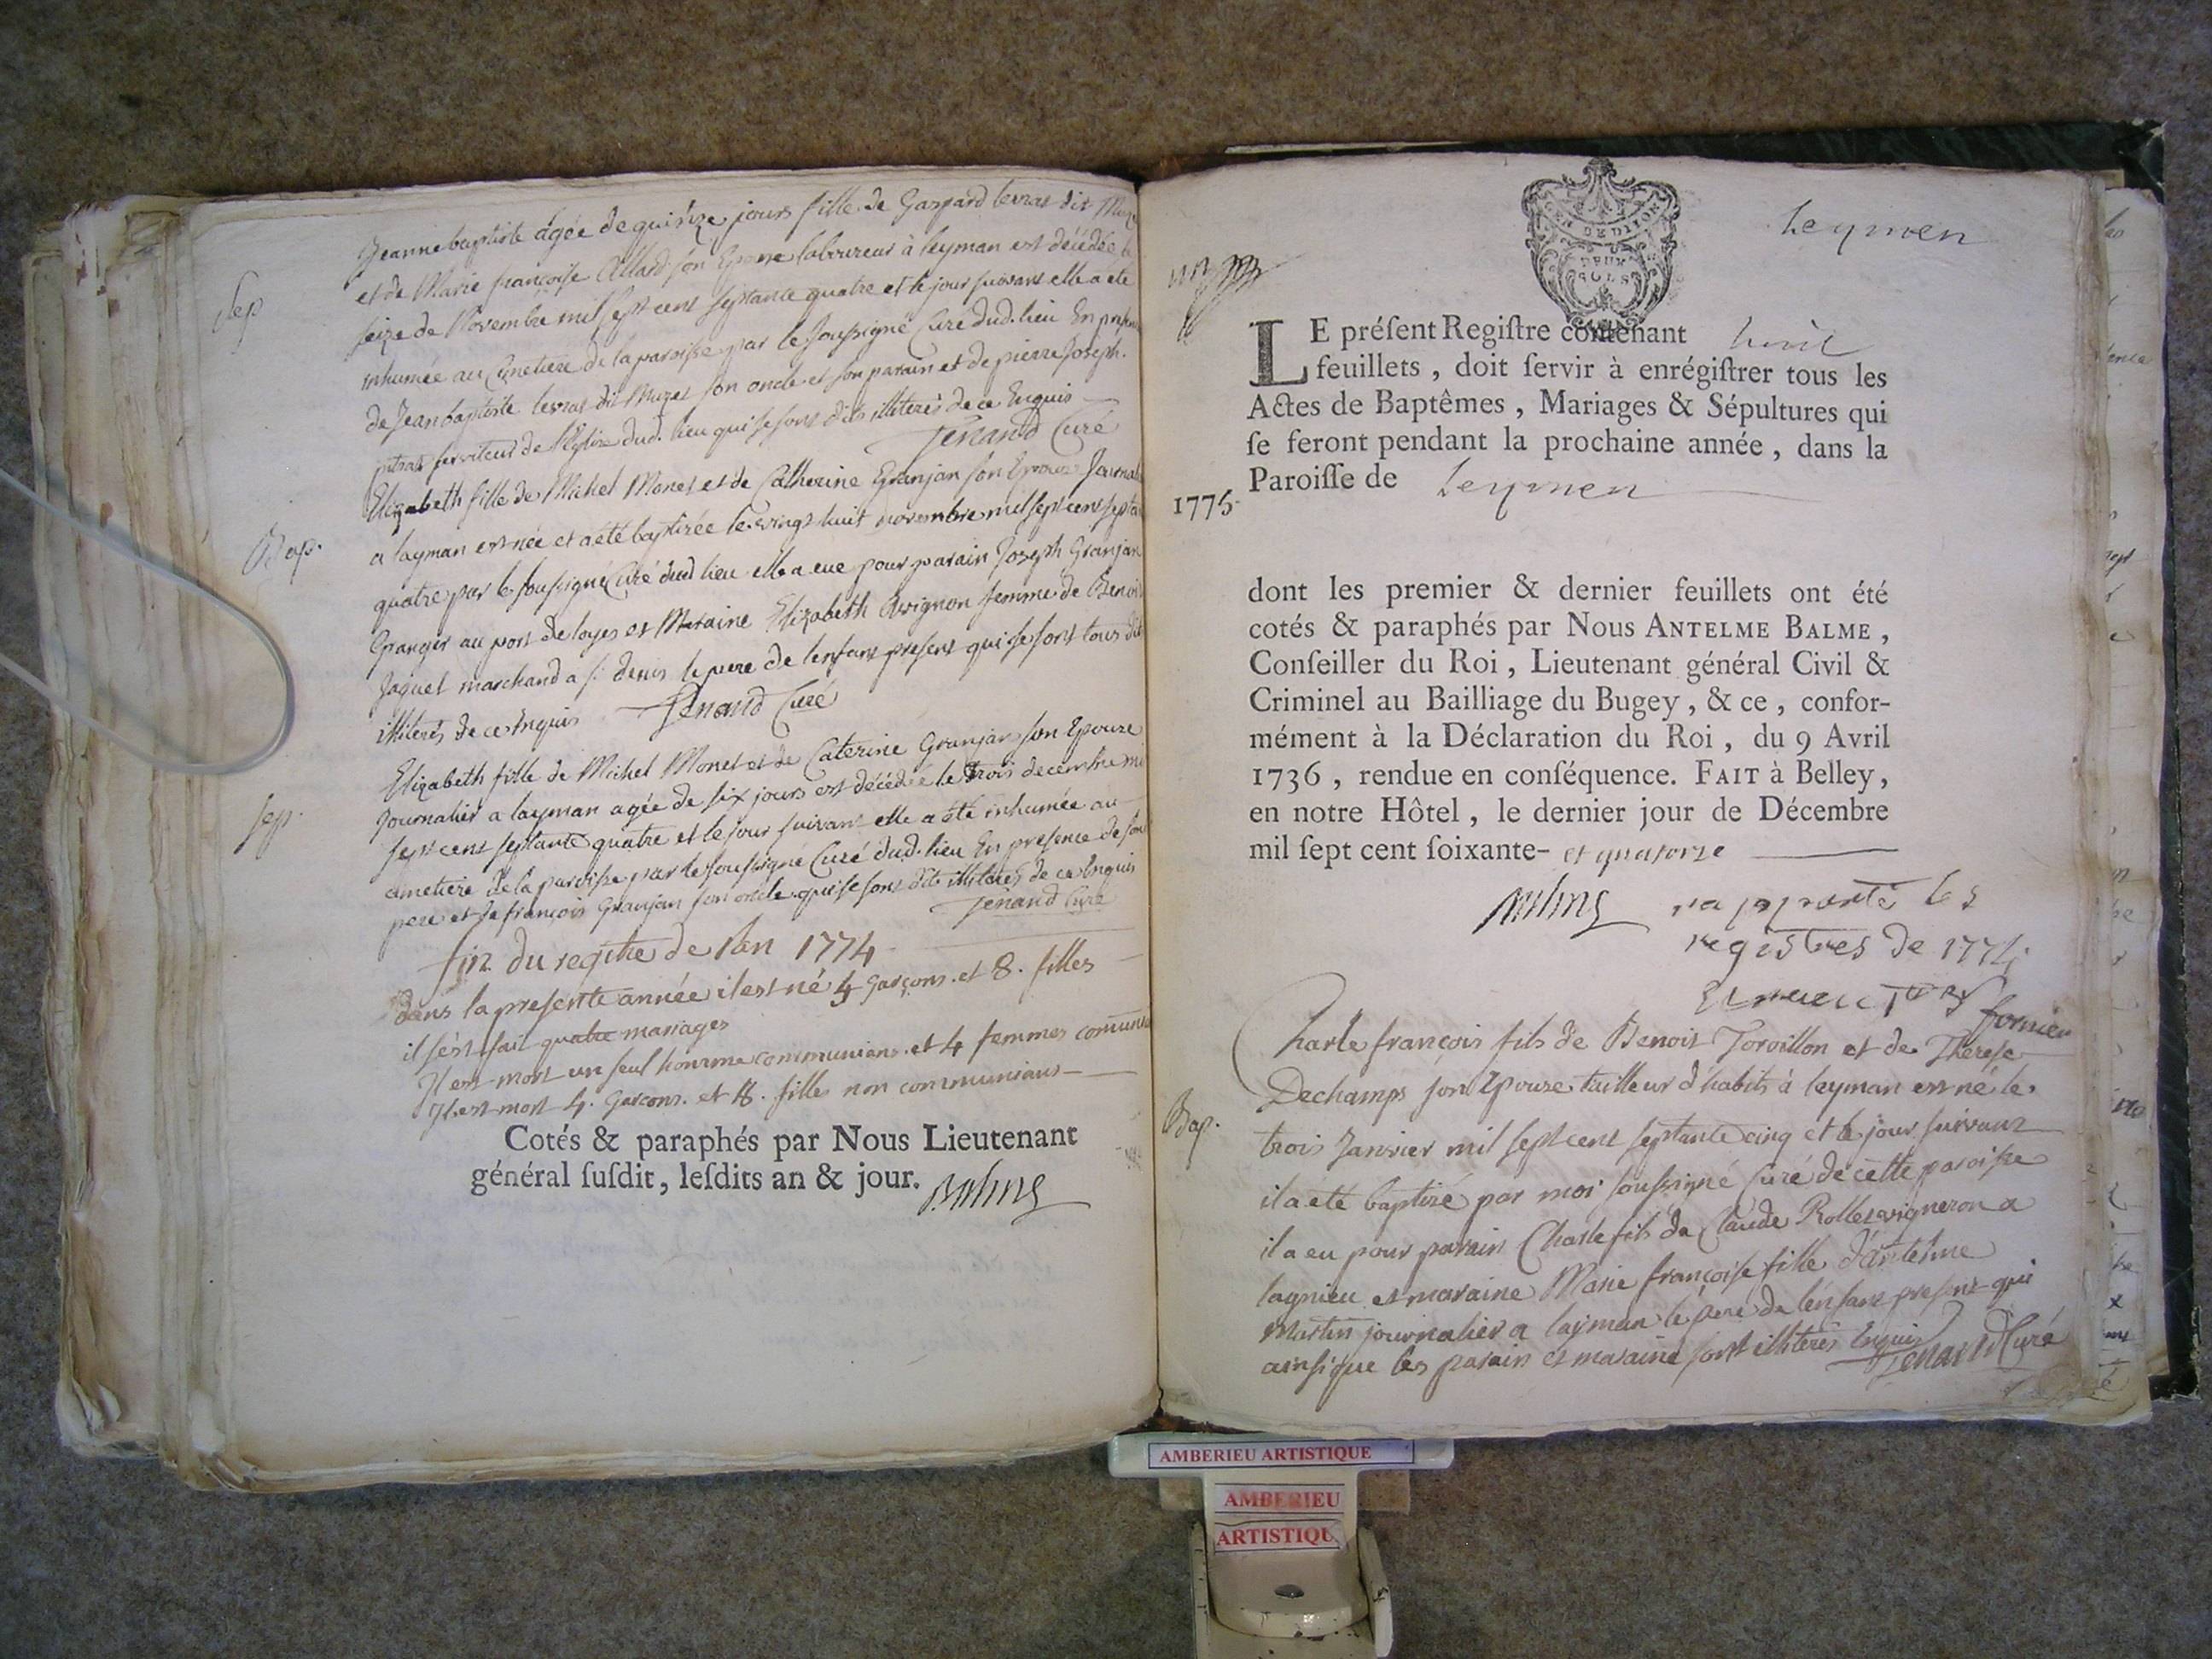 Sep
Jeanne baptiste agée de quinze jours fille de Gaspard levrat dit
et de Marie françoise Allard son Epouse laboureur à leyman est décédée le
seize de Novembre mil sept cent septante quatre et le jour suivant elle a eté
inhumée au Cimetiere de la paroisse par le soussigné Curé dud. lieu En presence
de Jean baptiste levrat dit Muzet son oncle et son parain et de pierre Joseph
serviteur de l'Eglise dud. lieu qui se sont dits illiterés de ce Enquis
Tenand Curé
Bap.
Elizabeth fille de Michel Monet et de Catherine Granjan son Epouse Journal
a layman est née et a eté baptizée le vingt huit novembre mil sept cent septa
quatre par le soussigné Curé dud lieu elle a eue pour parain Joseph Granjan
Granger au port de loyes et Maraine Elizabeth Avignon femme de Benoit
Jaquet marchand a st denis le pere de l'enfant present qui se sont tous dit
illiterés de ce Enquis Tenand Curé
sep.
Elizabeth fille de Michel Monet et de Caterine Granjan son Epouze
Journalier a layman agée de six jours est décédée le trois decembre mil
sept cent septante quatre et le jour suivant elle a eté inhumée au
cimetiere de la paroisse par le soussigné Curé dud. lieu En presence de son
pere et de françois Granjan son oncle qui se sont dits illiterés de ce Enquis
Tenand Curé
fin du regitre de l'an 1774
Dans la presente année il est né 4 garçons et 8. filles
il s'est fait quatre mariages
Il est mort un seul homme communiant et 4 femmes comuni
Il est mort 4. Garcons. et 8. filles non communiants
Cotés & paraphés par Nous Lieutenant
général ſuſdit, leſdits an & jour.
Balme
Leymen
GEN DE DIJON
DEUX
SOLS
LE préſent Regiſtre contenant huit
feuillets, doit ſervir à enrégiſtrer tous les
Actes de Baptêmes, Mariages & Sépultures qui
ſe feront pendant la prochaine année, dans la
Paroiſſe de Leymen
1775
dont les premier & dernier feuillets ont été
cotés & paraphés par Nous ANTELME BALME,
Conſeiller du Roi, Lieutenant général Civil &
Criminel au Bailliage du Bugey, & ce, confor-
mément à la Déclaration du Roi, du 9 Avril
1736, rendue en conſéquence. FAIT à Belley,
en notre Hôtel, le dernier jour de Décembre
mil ſept cent ſoixante- et quatorze
Balme
rapporté les
registres de 1774
Bap.
Charle françois fils de Benoit Torvillon et de Therese
Dechamps son Epouze tailleur d'habits à leyman est né le
trois Janvier mil sept cent septante cinq et le jour suivant
il a eté baptizé par moi soussigné Curé de cette paroisse
il a eu pour parain Charle fils de Claude Rollet vigneron a
lagnieu et maraine Marie françoise fille d'antelme
Martin journalier a layman le pere de l'enfant present qui
ainsi que les parain et maraine sont illiterés Enquis Tenand Curé
AMBERIEU ARTISTIQUE
AMBERIEU
ARTISTIQU